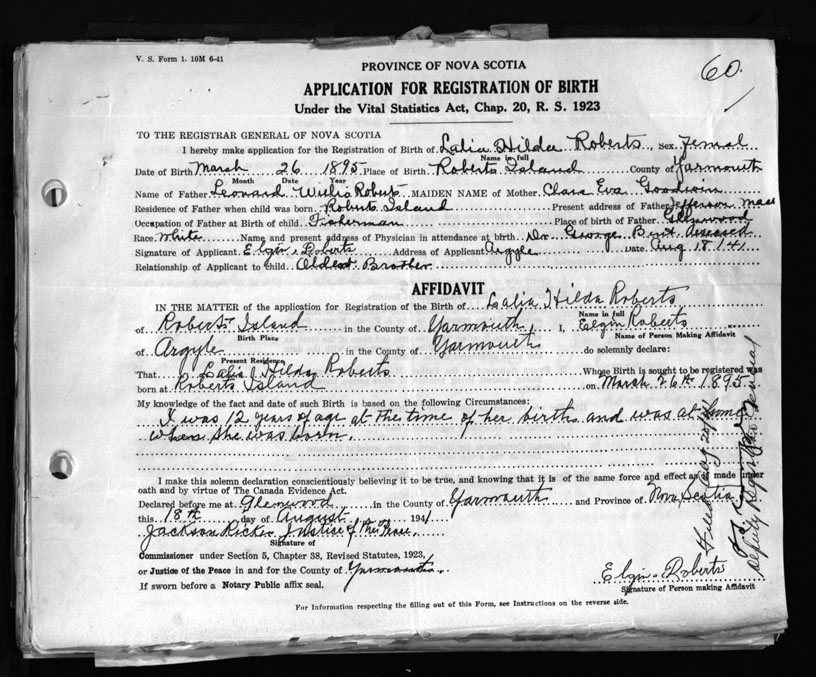 V. S. Form 1. 10M 6-41
60.
PROVINCE OF NOVA SCOTIA
APPLICATION FOR REGISTRATION OF BIRTH
Under the Vital Statistics Act, Chap. 20, R. S. 1923
TO THE REGISTRAR GENERAL OF NOVA SCOTIA
I hereby make application for the Registration of Birth of Lalia Hilda Roberts Sex Femal
Name in full
Date of Birth March 26 1895 Place of Birth Roberts Island County of Yarmouth
Month Date Year
Name of Father Leonard Willis Roberts MAIDEN NAME of Mother Clara Eva Goodwin
Residence of Father when child was born Roberts Island Present address of Father Jefferson Mass
Occupation of Father at Birth of child Fisherman Place of birth of Father Glenwood
Race White Name and present address of Physician in attendance at birth Dr George Bent Deseased
Signature of Applicant Elgin Roberts Address of Applicant Argyle Date Aug 18 141
Relationship of Applicant to Child Oldest Brother
AFFIDAVIT
IN THE MATTER of the application for Registration of the Birth of Lalia Hilda Roberts
Name in full
of Roberts Island in the County of Yarmouth, I, Elgin Roberts
Birth Place Name of Person Making Affidavit
of Argyle in the County of Yarmouth do solemnly declare:
Present Residence
That Lalia Hilda Roberts Whose Birth is sought to be registered was
born at Roberts Island on March 26th 1895
My knowledge of the fact and date of such Birth is based on the following Circumstances:
I was 12 years of age at the time of her birth and was at home
when she was born.
I make this solemn declaration conscientiously believing it to be true, and knowing that it is of the same force and effect as if made under
oath and by virtue of The Canada Evidence Act.
Declared before me at Glenwood in the County of Yarmouth and Province of Nova Scotia
this 18th day of August 1941
Jackson Ricker Justice of the Peace
Signature of
Commissioner under Section 5, Chapter 38, Revised Statutes, 1923,
or Justice of the Peace in and for the County of Yarmouth.
If sworn before a Notary Public affix seal.
Elgin Roberts
Signature of Person making Affidavit
For Information respecting the filling out of this Form, see Instructions on the reverse side.
Filed Aug 20/41
Deputy Registrar General